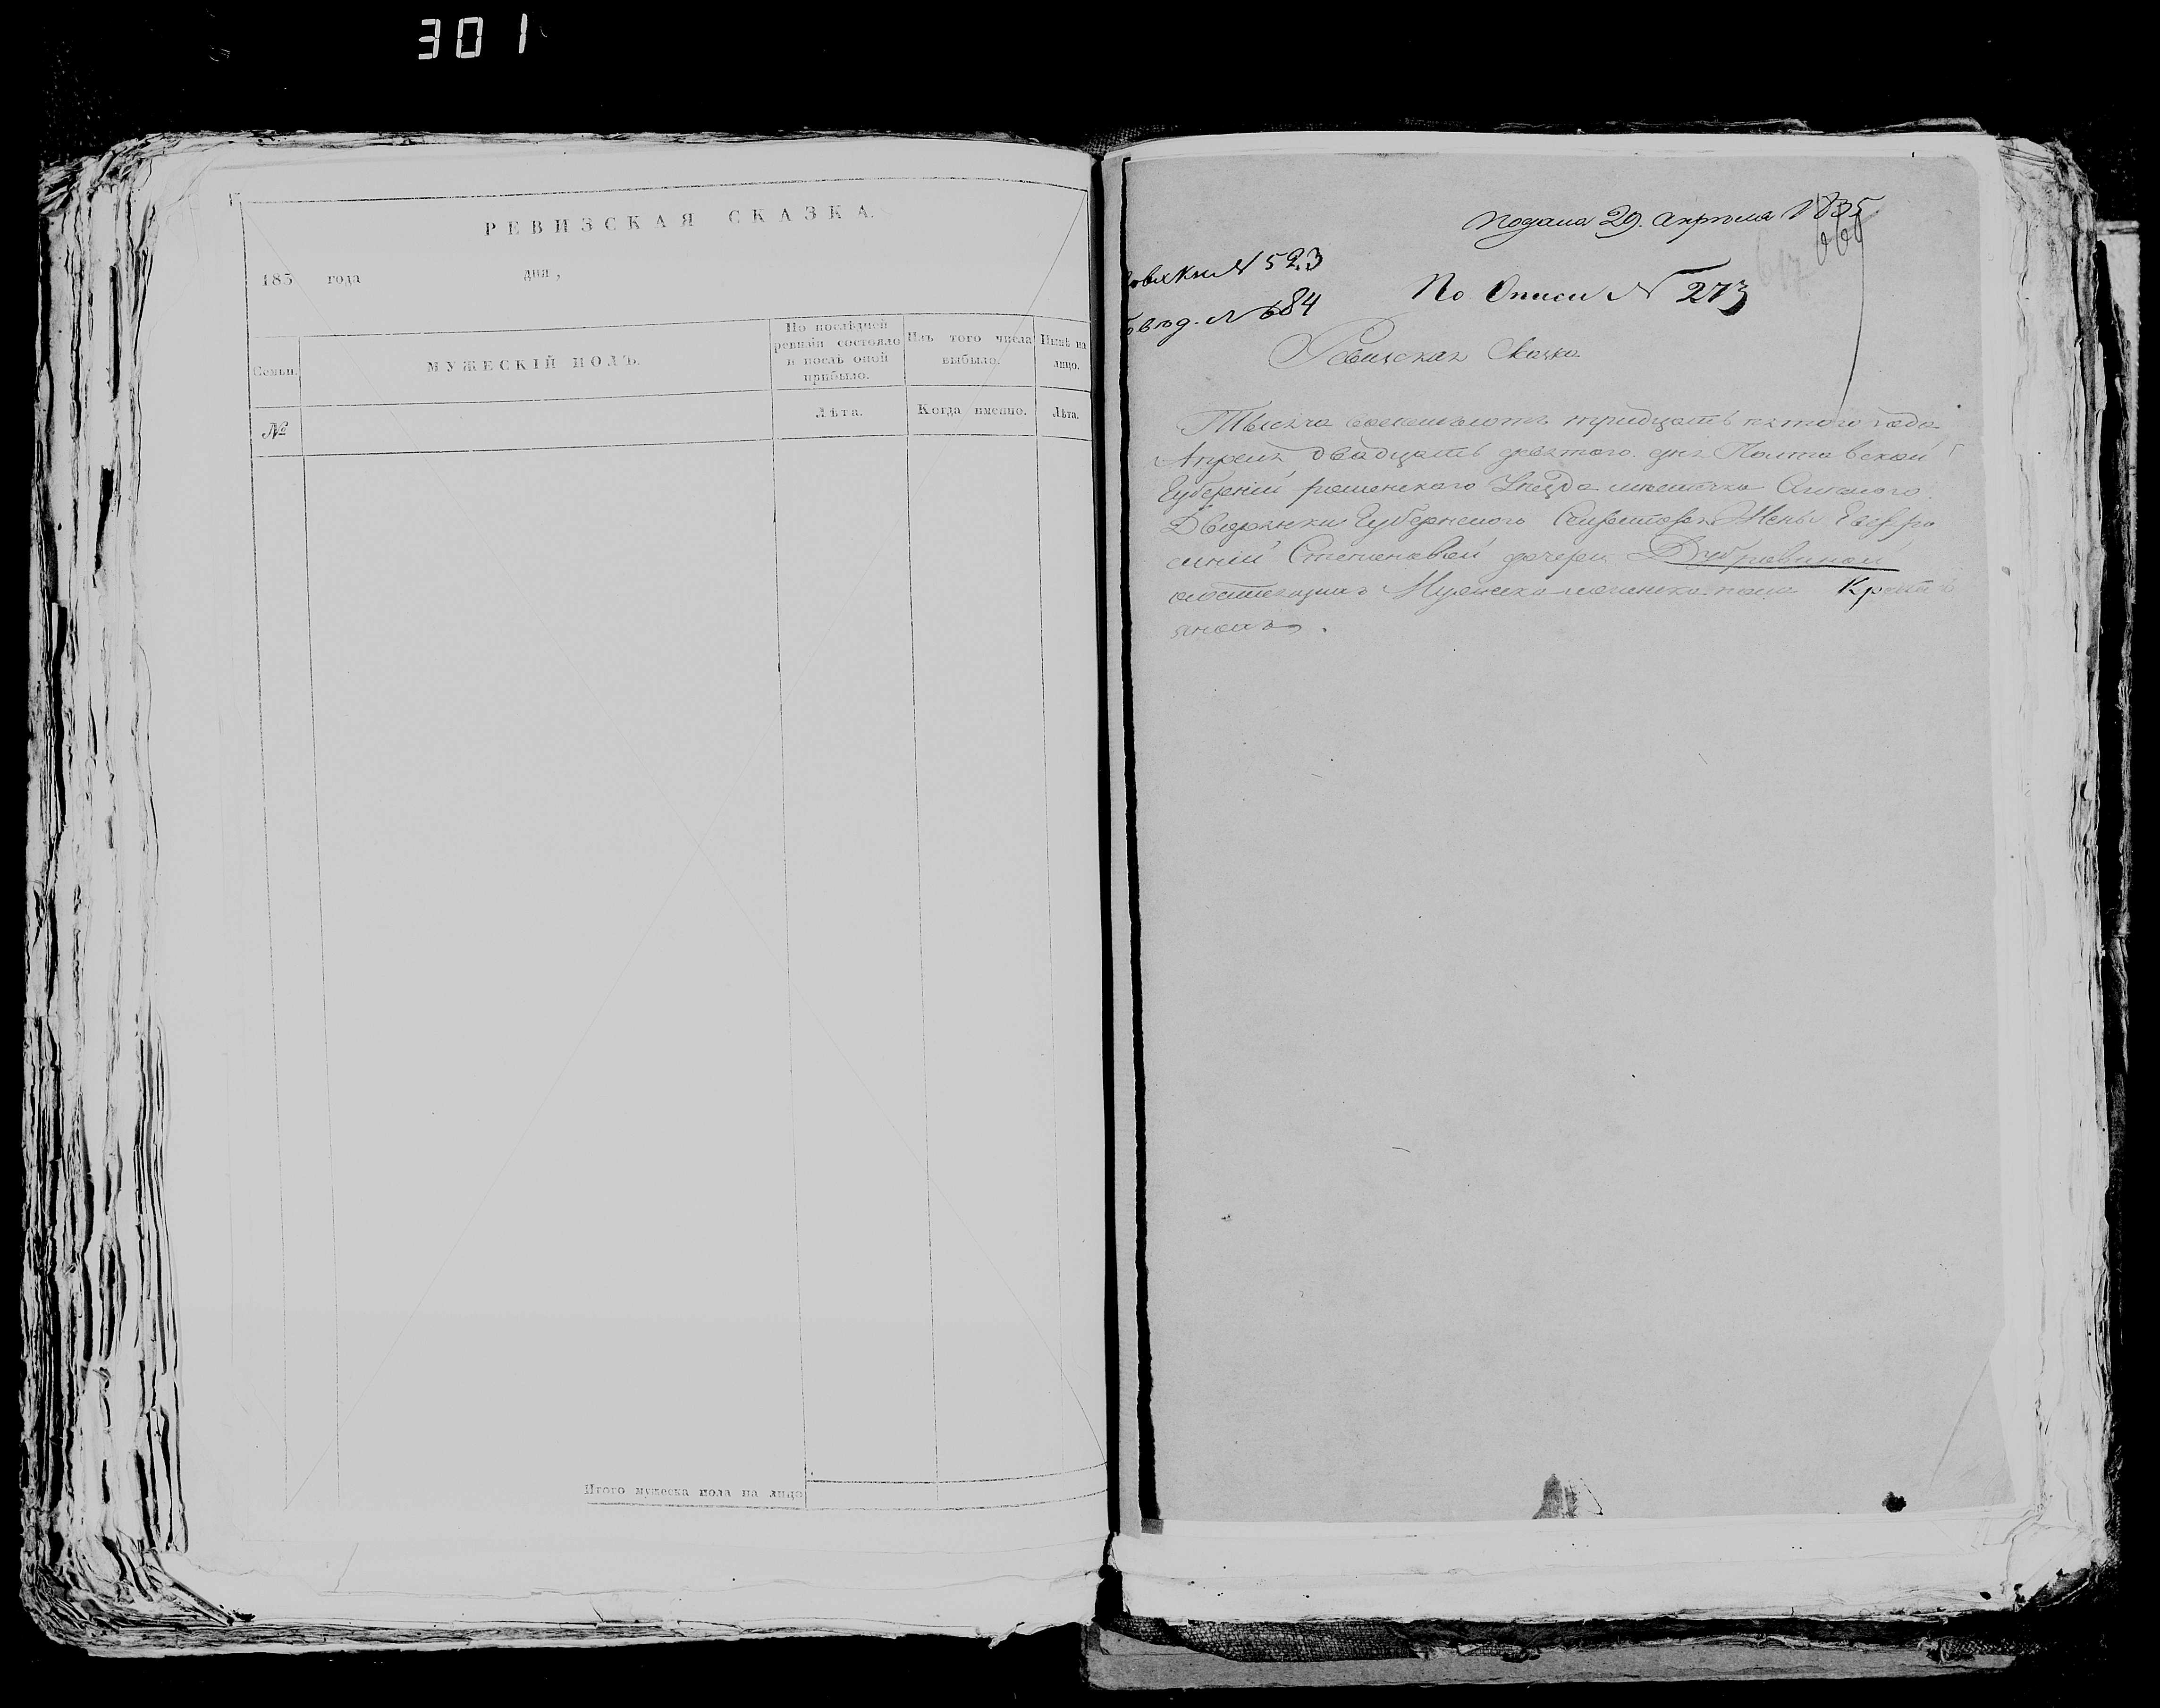 301
РЕВИЗСКАЯ СКАЗКА.
183 года дня,
Семьи.
МУЖЕСКІЙ ПОЛЪ.
По послѣдней ревизіи состояло и послѣ оной прибыло.
Изъ того числа выбыло.
Нынѣ на лицо.
№
Лѣта.
Когда именно.
Лѣта.
Итого мужеска пола на лицо
Подана 29. Апрѣля 1835
№ 523
617
№ 684
По Описи № 273
Ревизская Сказка
Тысяча восемьсотъ тридцать пятого года
Апреля двадцать девятого дня Полтавской
Губерніи роменского уезда местечка
Дворянки Губернского Секретаря Жены Евфро
синіи Степановой дочери Дубровиной
состоящихъ Мужеска и женска пола Крестъ
яновъ.